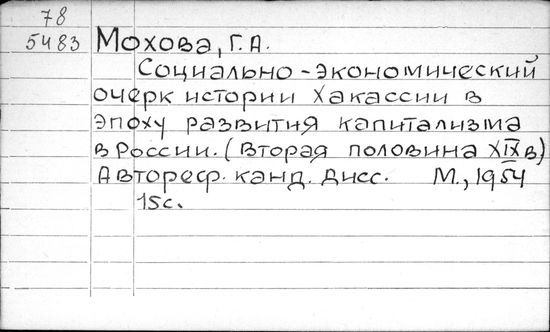 78
5483 Мохова, Г.А.
Социально-экономический
очерк истории Хакассии в
эпоху развития капитализма
в России. (вторая половина XIX в)
Автореф. канд. дисс. М., 1954
15с.